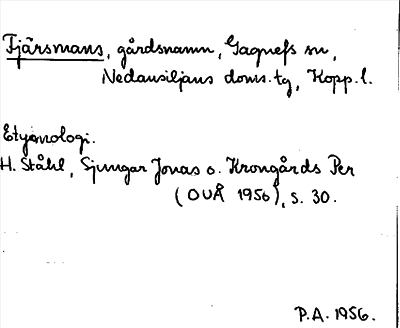 Fjärsmans, gårdsnamn, Gagnefs sn,
Nedansiljans doms.tg, Kopp.l.
Etymologi.
H. Ståhl, Sjungar Jonas o. Krongårds Per
(OUÅ 1956), s. 30.
P.A. 1956.